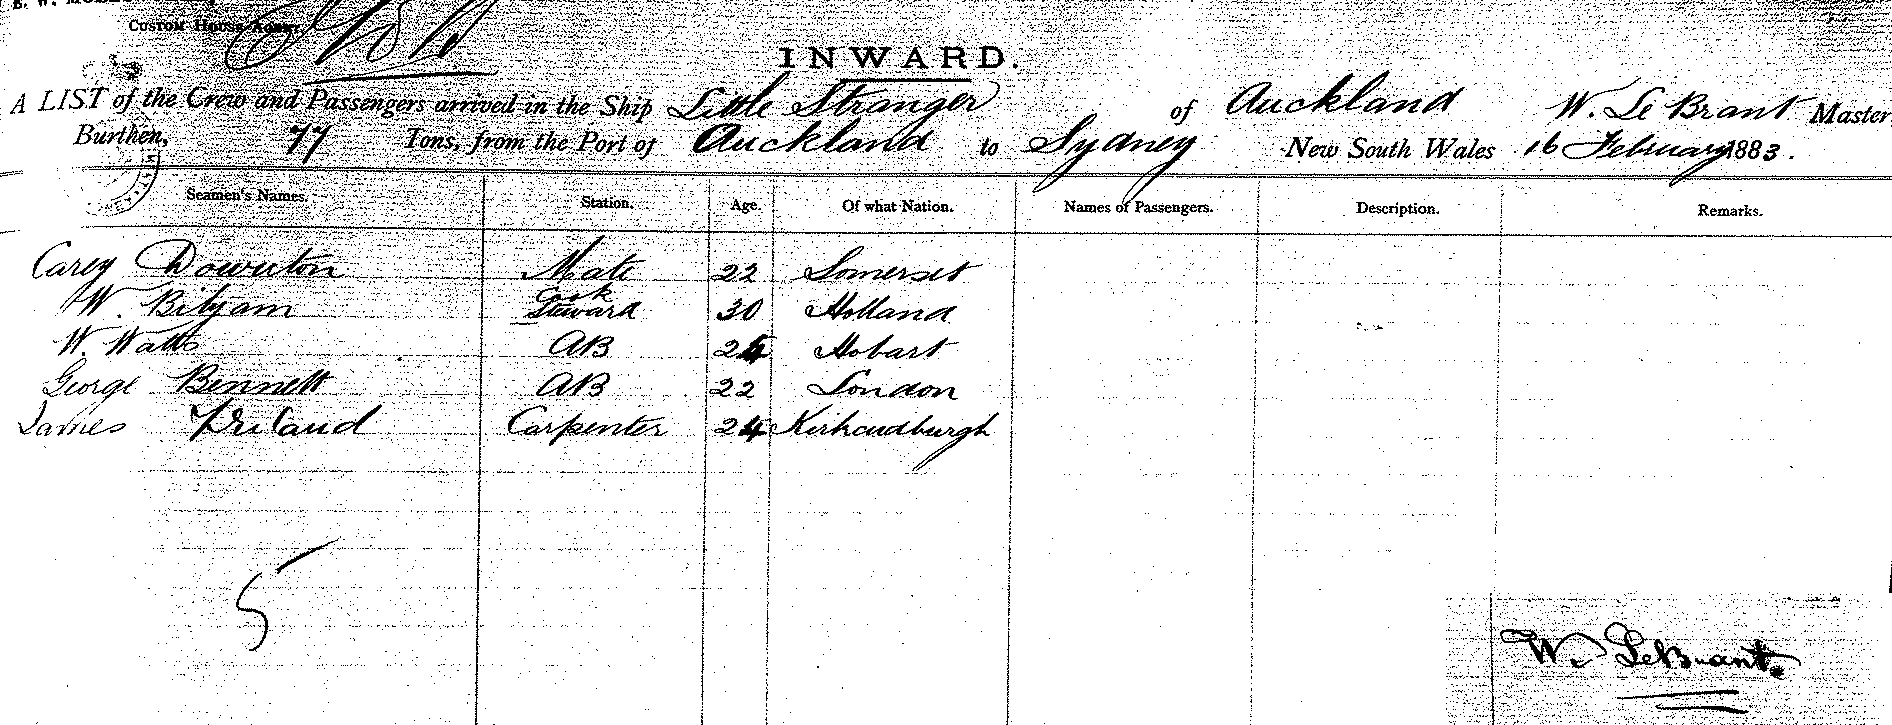 Custom House Agent
INWARD.
A LIST of the Crew and Passengers arrived in the Ship Little Stranger of Auckland W. Le Brant Master
Burthen, 77 Tons, from the Port of Auckland to Sydney New South Wales 16 February 1883.
Seamen's Names. Station. Age. Of what Nation. Names of Passengers. Description. Remarks.
Carey Downton Mate 22 Somerset
W. Cook Steward 30 Holland
W. Watts AB 24 Hobart
George Bennett AB 22 London
James Carpenter 24 Kirkcudburgh
5
W. LeBrant.